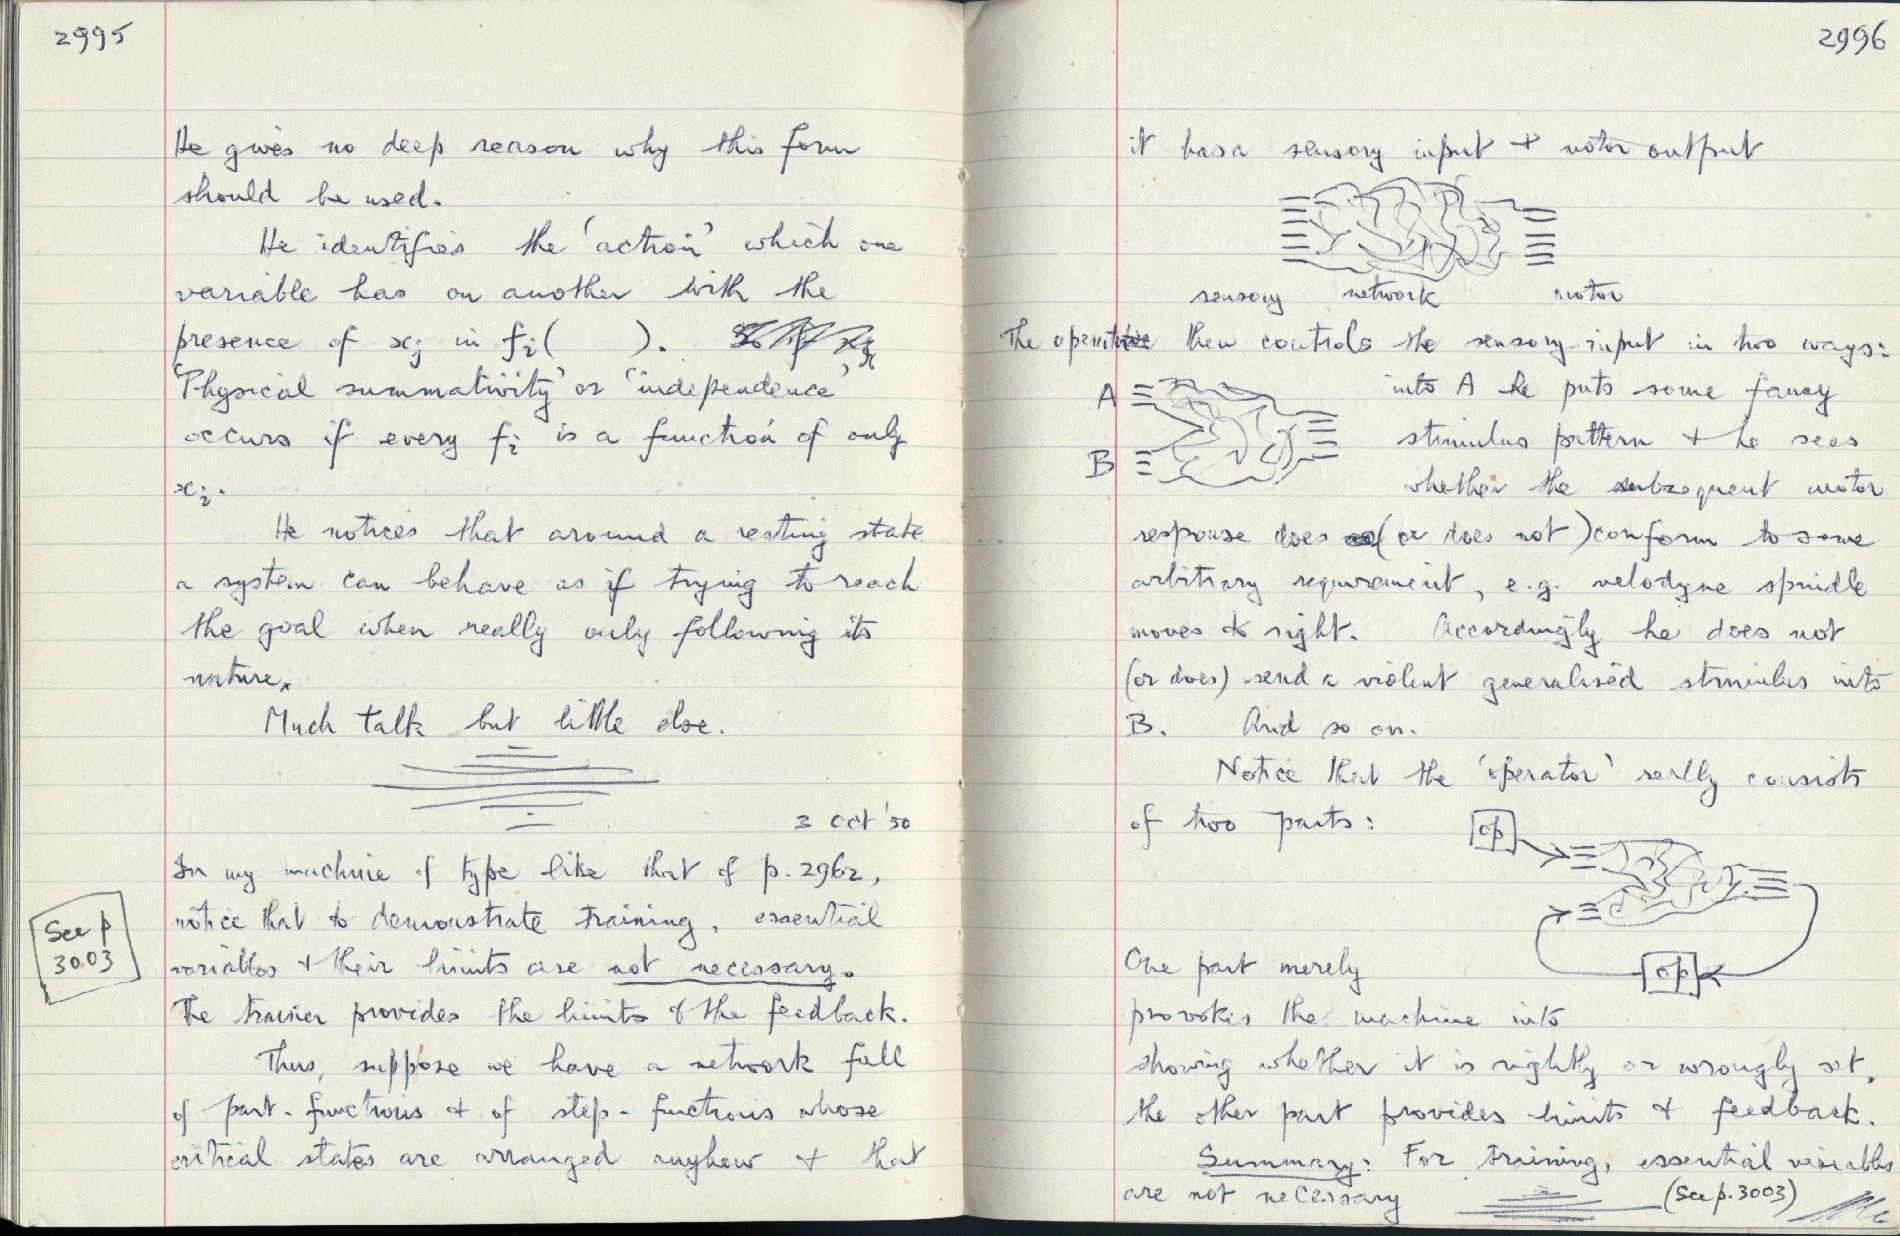 2995
He gives no deep reason why this form
should be used.
He identifies the 'action' which one
variable has on another with the
presence of xj in fi(      ).
'Physical summativity' or 'independence'
occurs if every fi is a function of only
xi.
He notices that around a resting state
a system can behave as if trying to reach
the goal when really only following its
nature.
Much talk but little else.
3 Oct '50
In my machine of type like that of p. 2962,
notice that to demonstrate training, essential
variables + their limits are not necessary.
The trainer provides the limits & the feedback.
See p
3003
Thus, suppose we have a network full
of part-functions + of step-functions whose
critical states are arranged anyhow + that
2996
it has a sensory input + motor output
sensory network motor
The operator then controls the sensory input in two ways:
A
B
into A he puts some fancy
stimulus pattern + he sees
whether the subsequent motor
response does (or does not) conform to some
arbitrary requirement, e.g. velodyne spindle
moves to right. Accordingly he does not
(or does) send a violent generalised stimulus into
B. And so on.
Notice that the 'operator' really consists
of two parts:
op
op
One part merely
provokes the machine into
showing whether it is rightly or wrongly set,
the other part provides limits + feedback.
Summary: For training, essential variables
are not necessary
(See p. 3003)